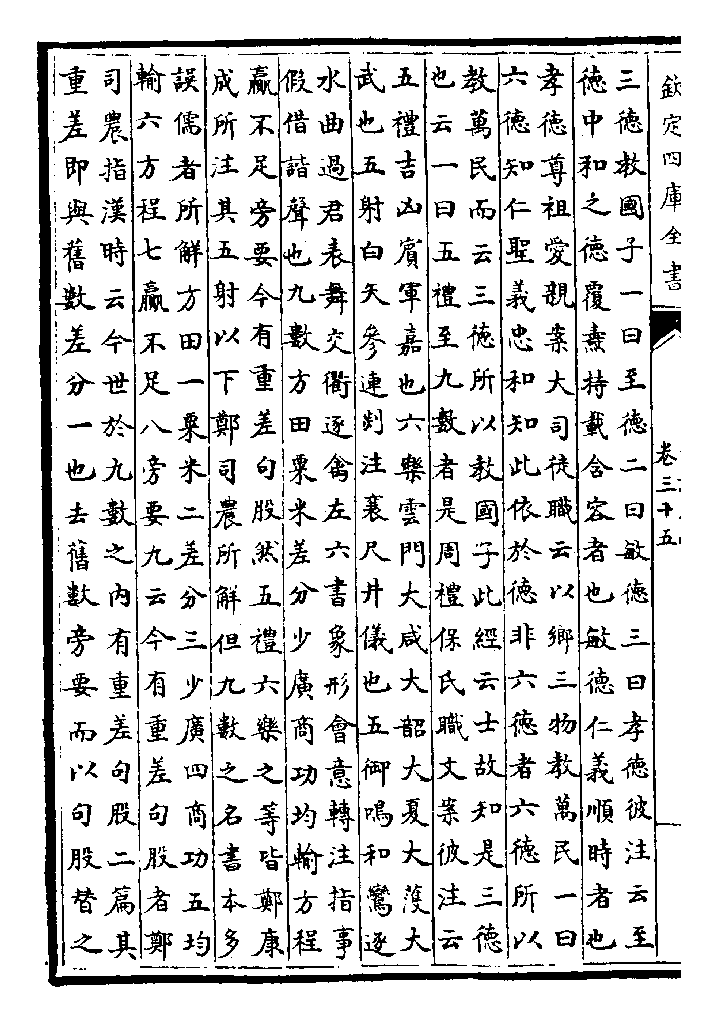 欽定四庫全書
卷三十五
三德教國子一曰至德二曰敏德三曰孝德彼注云至
德中和之德覆燾持載含容者也敏德仁義順時者也
孝德尊祖愛親案大司徒職云以鄉三物教萬民一曰
六德知仁聖義忠和知此依於德非六德者六德所以
教萬民而云三德所以教國子此經云士故知是三德
也云一曰五禮至九數者是周禮保氏職文案彼注云
五禮吉凶賓軍嘉也六樂雲門大咸大韶大夏大濩大
武也五射白矢參連剡注襄尺井儀也五御鳴和鸞逐
水曲過君表舞交衢逐禽左六書象形會意轉注指事
假借諧聲也九數方田粟米差分少廣商功均輸方程
贏不足旁要今有重差句股然五禮六樂之等皆鄭康
成所注其五射以下鄭司農所解但九數之名書本多
誤儒者所解方田一粟米二差分三少廣四商功五均
輸六方程七贏不足八旁要九云今有重差句股者鄭
司農指漢時云今世於九數之內有重差句股二篇其
重差即與舊數差分一也去舊數旁要而以句股替之